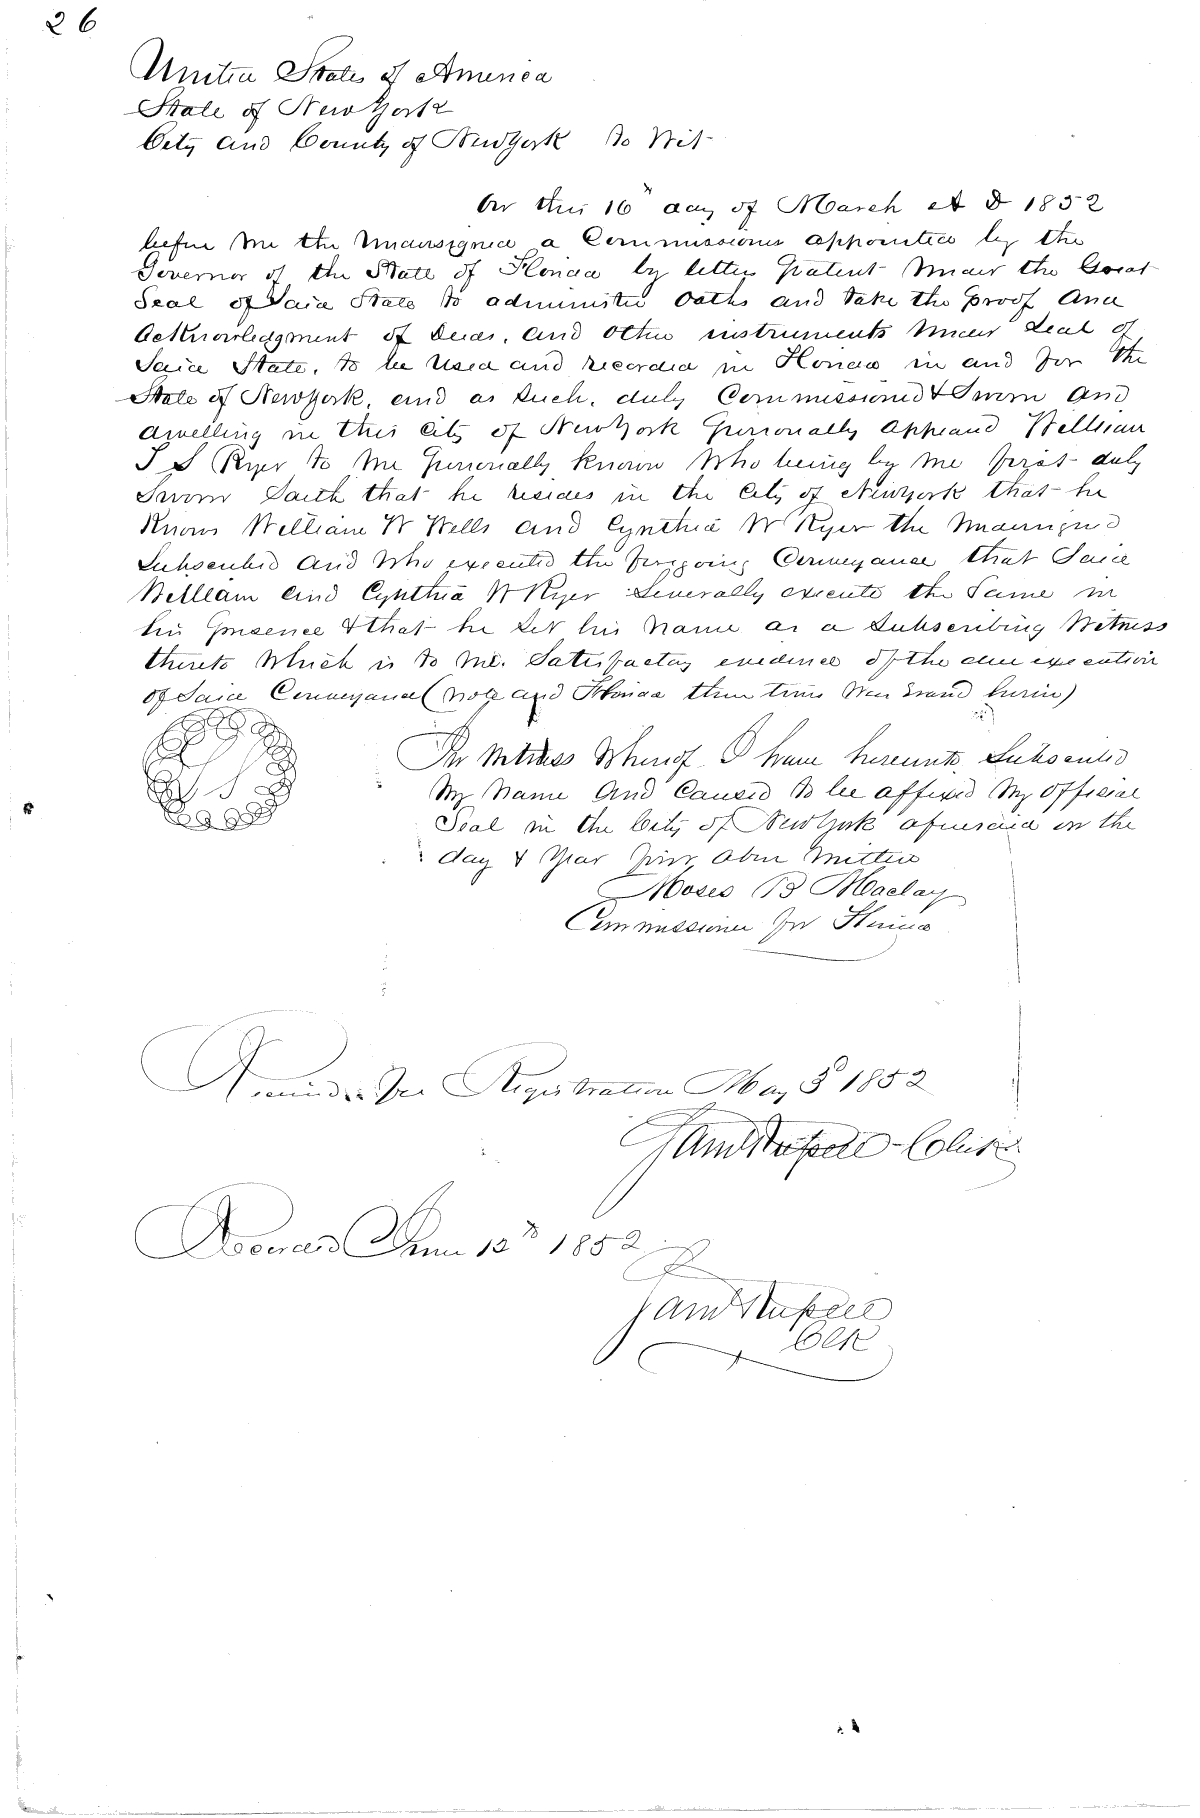 26
United States of America
State of New York
City and County of New York to Wit
On this 16" day of March A D 1852
before me the undersigned a Commissioner appointed by the
Governor of the State of Florida by letters patent under the Great
Seal of Said State to administer oaths and take the proof and
acknowledgment of Deeds, and other instruments under Seal of
Said State, to be used and recorded in Florida in and for the
State of New York, and as such, duly Commissioned & Sworn and
dwelling in this City of New York personally appeared William
T S Ryer to me personally known who being by me first duly
Sworn Saith that he resides in the City of New York that he
Knows William W Wells and Cynthia W Ryer the undersigned
Subscribed and who executed the foregoing Conveyance that Said
William and Cynthia W Ryer Severally execute the Same in
his presence & that he Set his name as a Subscribing Witness
thereto which is to me. Satisfactory evidence of the due execution
of Said Conveyance (note and Florida three times was erased herein)
L S
In Witness Whereof I have hereunto Subscribed
my name and caused to be affixed my official
Seal in the City of New York aforesaid on the
day & Year first above written
Moses B Maclay
Commissioner for Florida
Received for Registration May 3d 1852
Clerk
Recorded June 12th 1852
Clk